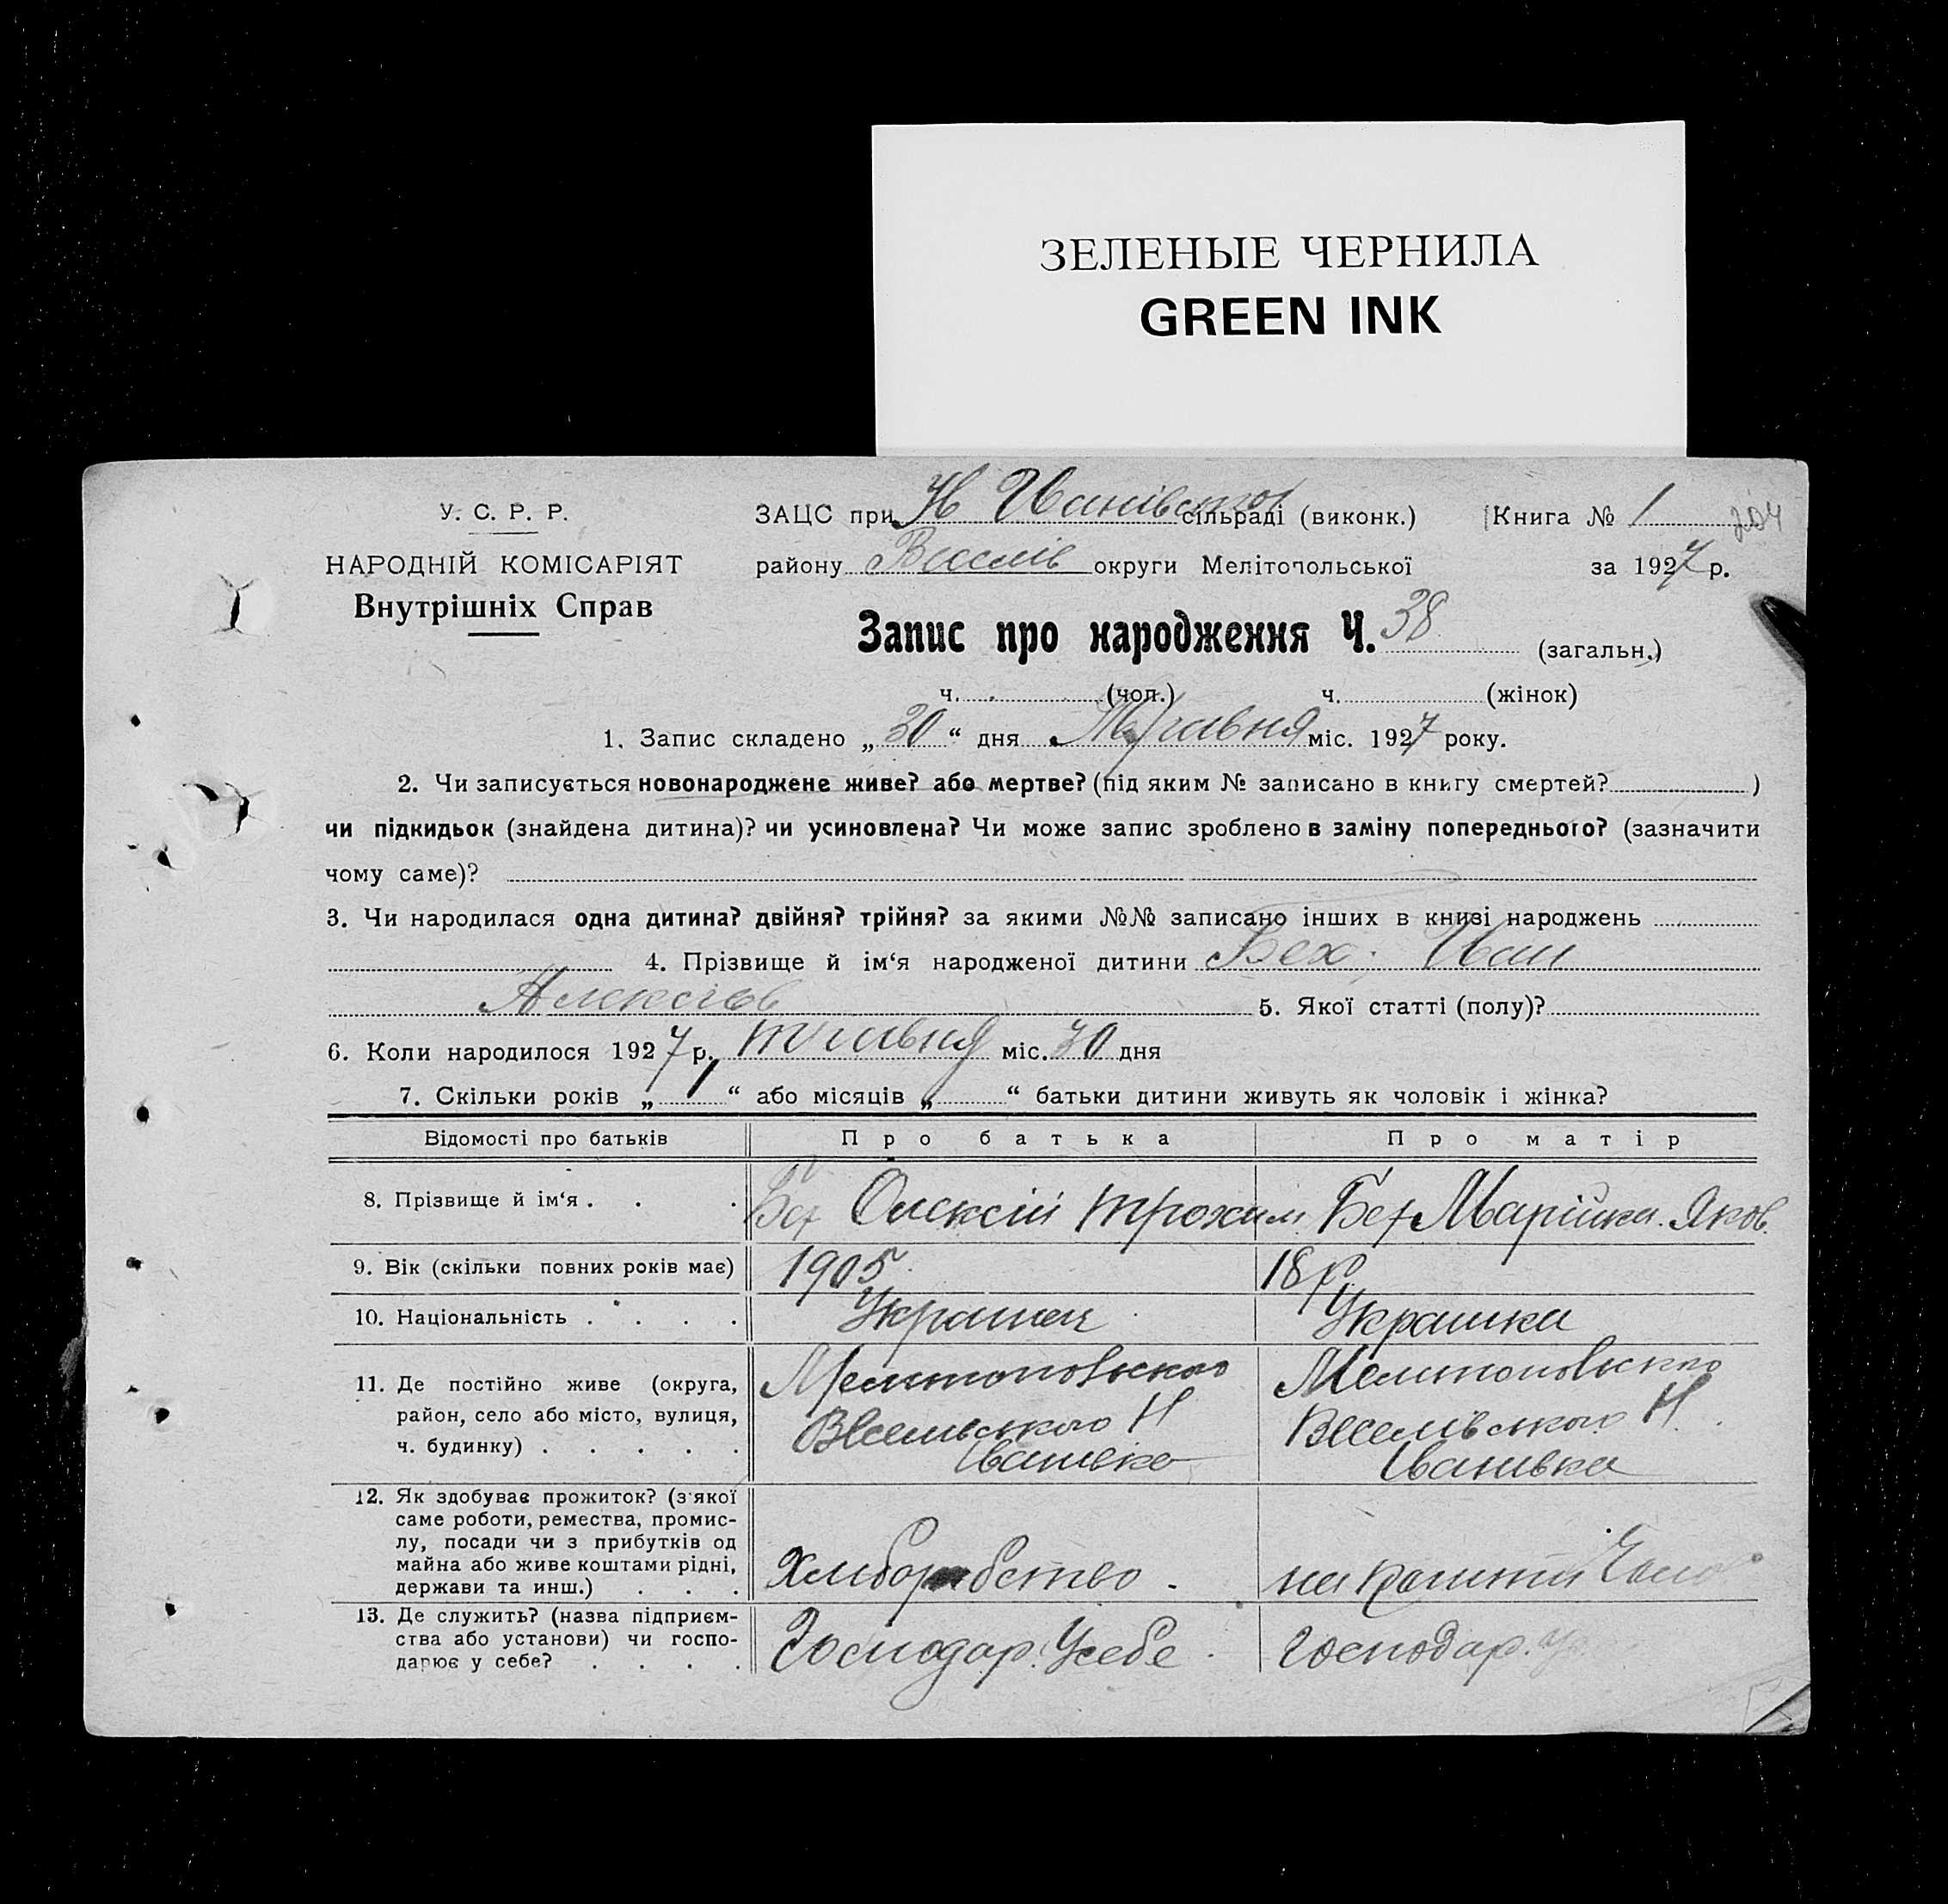 ЗЕЛЕНЫЕ ЧЕРНИЛА
GREEN INK
У. С. Р. Р.
НАРОДНІЙ КОМІСАРІЯТ
Внутрішніх Справ
ЗАЦС при Н Іванівськой сільраді (виконк.)
Книга № 1 204
району Веселів округи Мелітопольської
за 1927 р.
Запис про народження Ч. 38 (загальн.)
ч. (чол.) ч. (жінок)
1. Запис складено „30“ дня Травня міс. 1927 року.
2. Чи записується новонароджене живе? або мертве? (під яким № записано в книгу смертей? )
чи підкидьок (знайдена дитина)? чи усиновлена? Чи може запис зроблено в заміну попереднього? (зазначити
чому саме)?
3. Чи народилася одна дитина? двійня? трійня? за якими №№ записано інших в книзі народжень
4. Прізвище й ім‘я народженої дитини Бех Иван
Алексіев 5. Якої статті (полу)?
6. Коли народилося 1927 р. травня міс. 30 дня
7. Скільки років „1“ або місяців „ “ батьки дитини живуть як чоловік і жінка?
Відомості про батьків Про батька Про матір
8. Прізвище й ім‘я . . . Бех Олексій Трохим Бех Марійка Яков.
9. Вік (скільки повних років має) 1905 18 р.
10. Національність . . . . Українец Українка
11. Де постійно живе (округа,
район, село або місто, вулиця,
ч. будинку) . . . . .
Мелитопольского
Веселівського Н
Іванівка
Мелитопольского
Веселівського Н.
Іванивка
12. Як здобуває прожиток? (з якої
саме роботи, ремества, промис-
лу, посади чи з прибутків од
майна або живе коштами рідні,
держави та инш.) . . .
Хлиборобство.
на кошти Чоло
13. Де служить? (назва підприєм-
ства або установи) чи госпо-
дарює у себе? . . . .
Господар. Усебе.
Господар. У